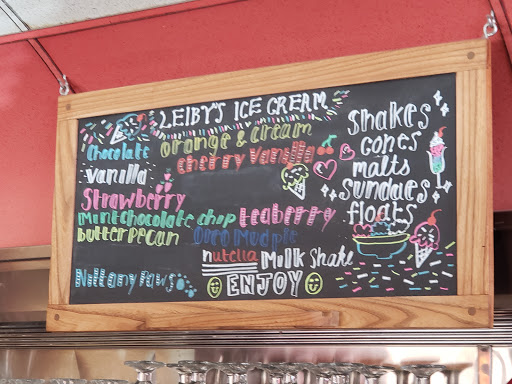 LEIBY'S ICE CREAM
orange & cream
Chocolate
cherry vanilla
vanilla
Strawberry
mint chocolate chip teaberry
butter pecan
Mud pie
nutella Milk Shake
Nittany Paws
ENJOY
Shakes
cones
malts
sundaes
floats